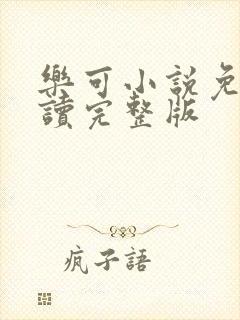 樂可小說免
讀完整版
疯子語